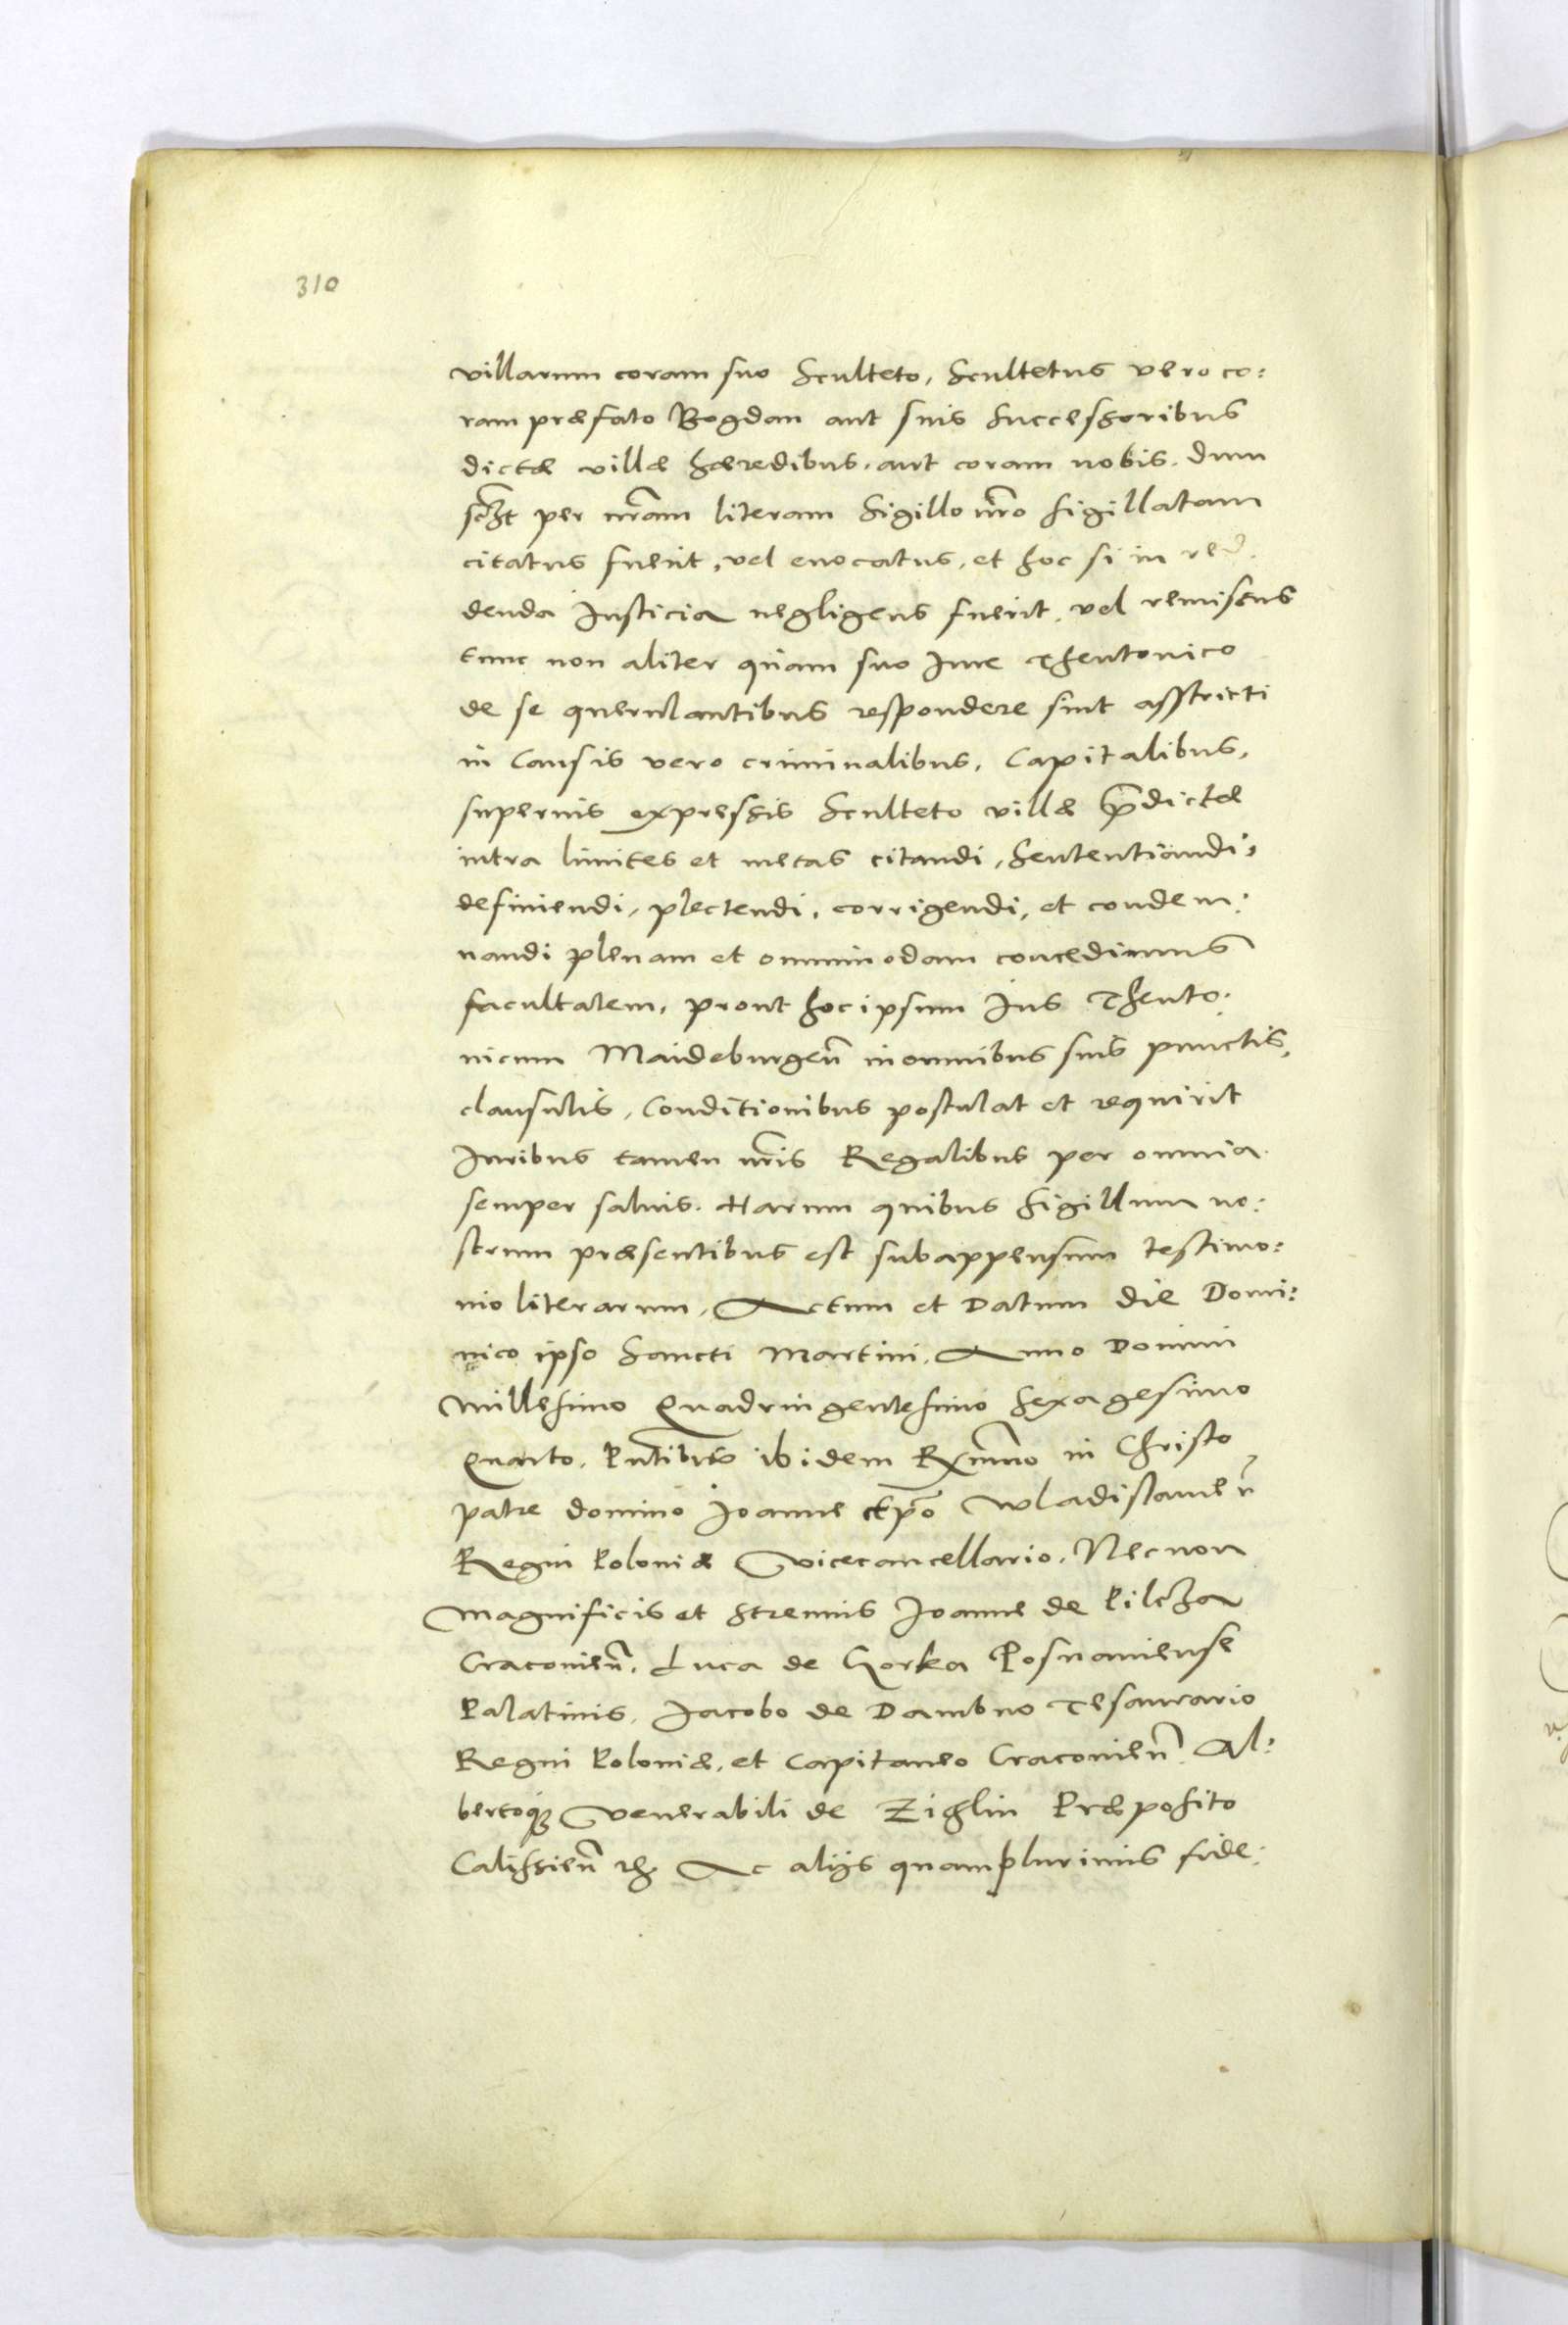 310
villarum coram suo Sculteto, Scultetus vero co:
ram præfato Bogdan aut suis Successoribus
dictæ villæ hæredibus, aut coram nobis. dum
per nr̃am literam Sigillo nr̃o sigillatam
citatus fuerit, vel euocatus, et hoc si in red.
denda Iusticia negligens fuerit, vel remissus
tunc non aliter quam suo Iure Theutonico
de se querulantibus respondere sint asstricti
in Causis vero criminalibus, Capitalibus,
superius expressis Sculteto villæ p̃dictæ
intra limites et metas citandi, Sententiandi,
definiendi, plectendi, corrigendi, et condem:
nandi plenam et omnimodam concedimus
facultatem, prout hoc ipsum Ius Theuto:
nicum Maideburgeñ in omnibus suis punctis,
clausulis, Conditionibus postulat et requirit
Iuribus tamen nr̃is Regalibus per omnia
semper saluis. Harum quibus Sigillum no:
strum præsentibus est subappensum testimo:
nio literarum, Actum et Datum die Domi:
nico ipso Sancti Martini, Anno Domini
Millesimo Quadringentesimo Sexagesimo
Quarto. Pñtibus ibidem Rx̃mmo in Christo
patre domino Ioanne Ep̃o Wladislauieñ
Regni Poloniæ Vicecancellario, Necnon
Magnificis et Strenuis Ioanne de Pilcza
Cracouieñ, Luca de Gorka Posnaniense
Palatinis, Iacobo de Dambno Tesaurario
Regni Poloniæ, et Capitaneo Cracouieñ Al:
bertoq3 Venerabili de Zichlin Præposito
Calissieñ et Ac alijs quamplurimis fide: